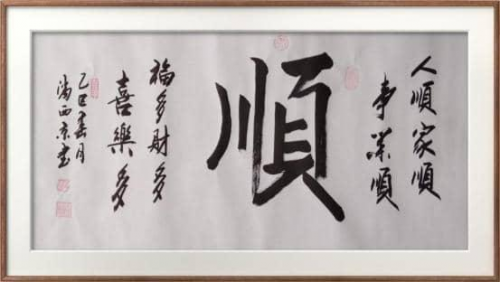 人順家順
事業順
順
福多財多
喜樂多
乙巳春月
西京書